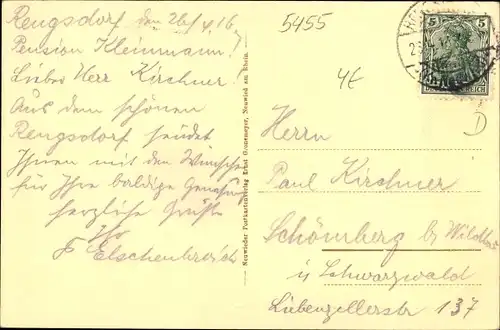 Rengsdorf den 26/4.16
Pension Kleinmann!
Lieber Herr Kirchner!
Aus dem schönen
Rengsdorf sendet
Ihnen mit den Wünschen
für Ihre baldige Genesung
herzliche Grüße
Ihr
Neuwieder Postkartenverlag Ernst Gronemeyer, Neuwied am Rhein.
5455
4E
D
5 5
Herrn
Paul Kirchner
Schömberg b/ Wildbad
i/ Schwarzwald
Liebenzellerstr 137